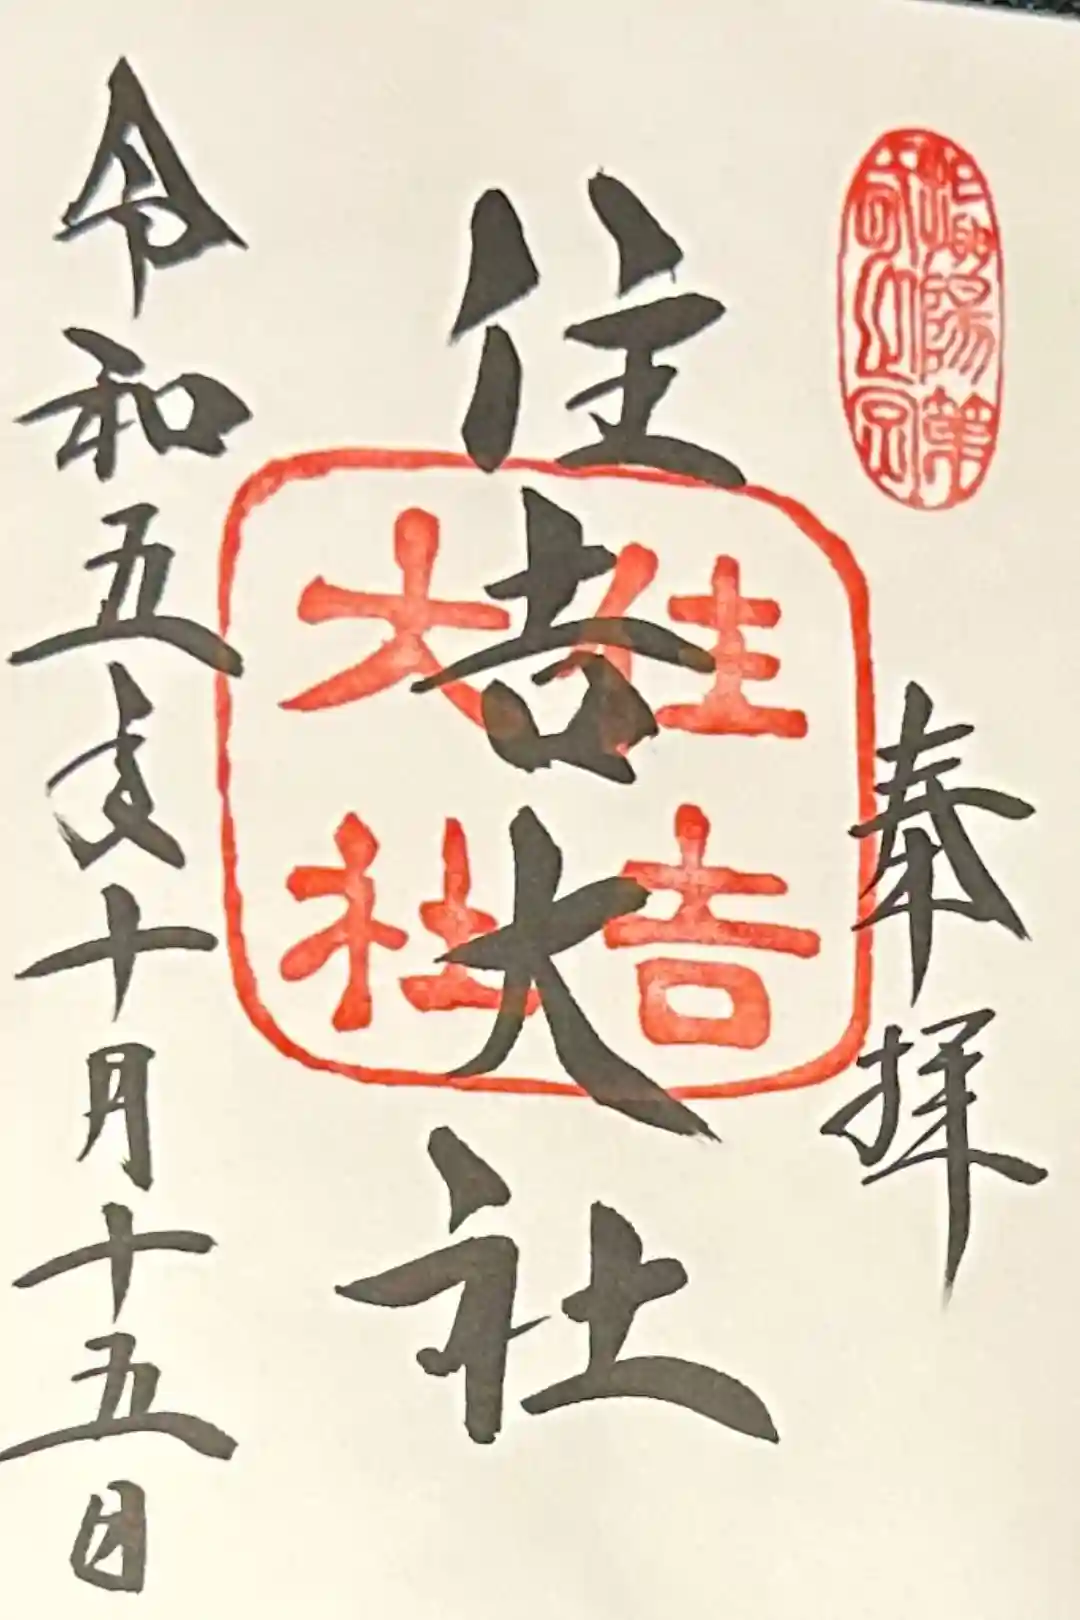 奉拝
住吉大社
住吉
大社
令和五年十月十五日